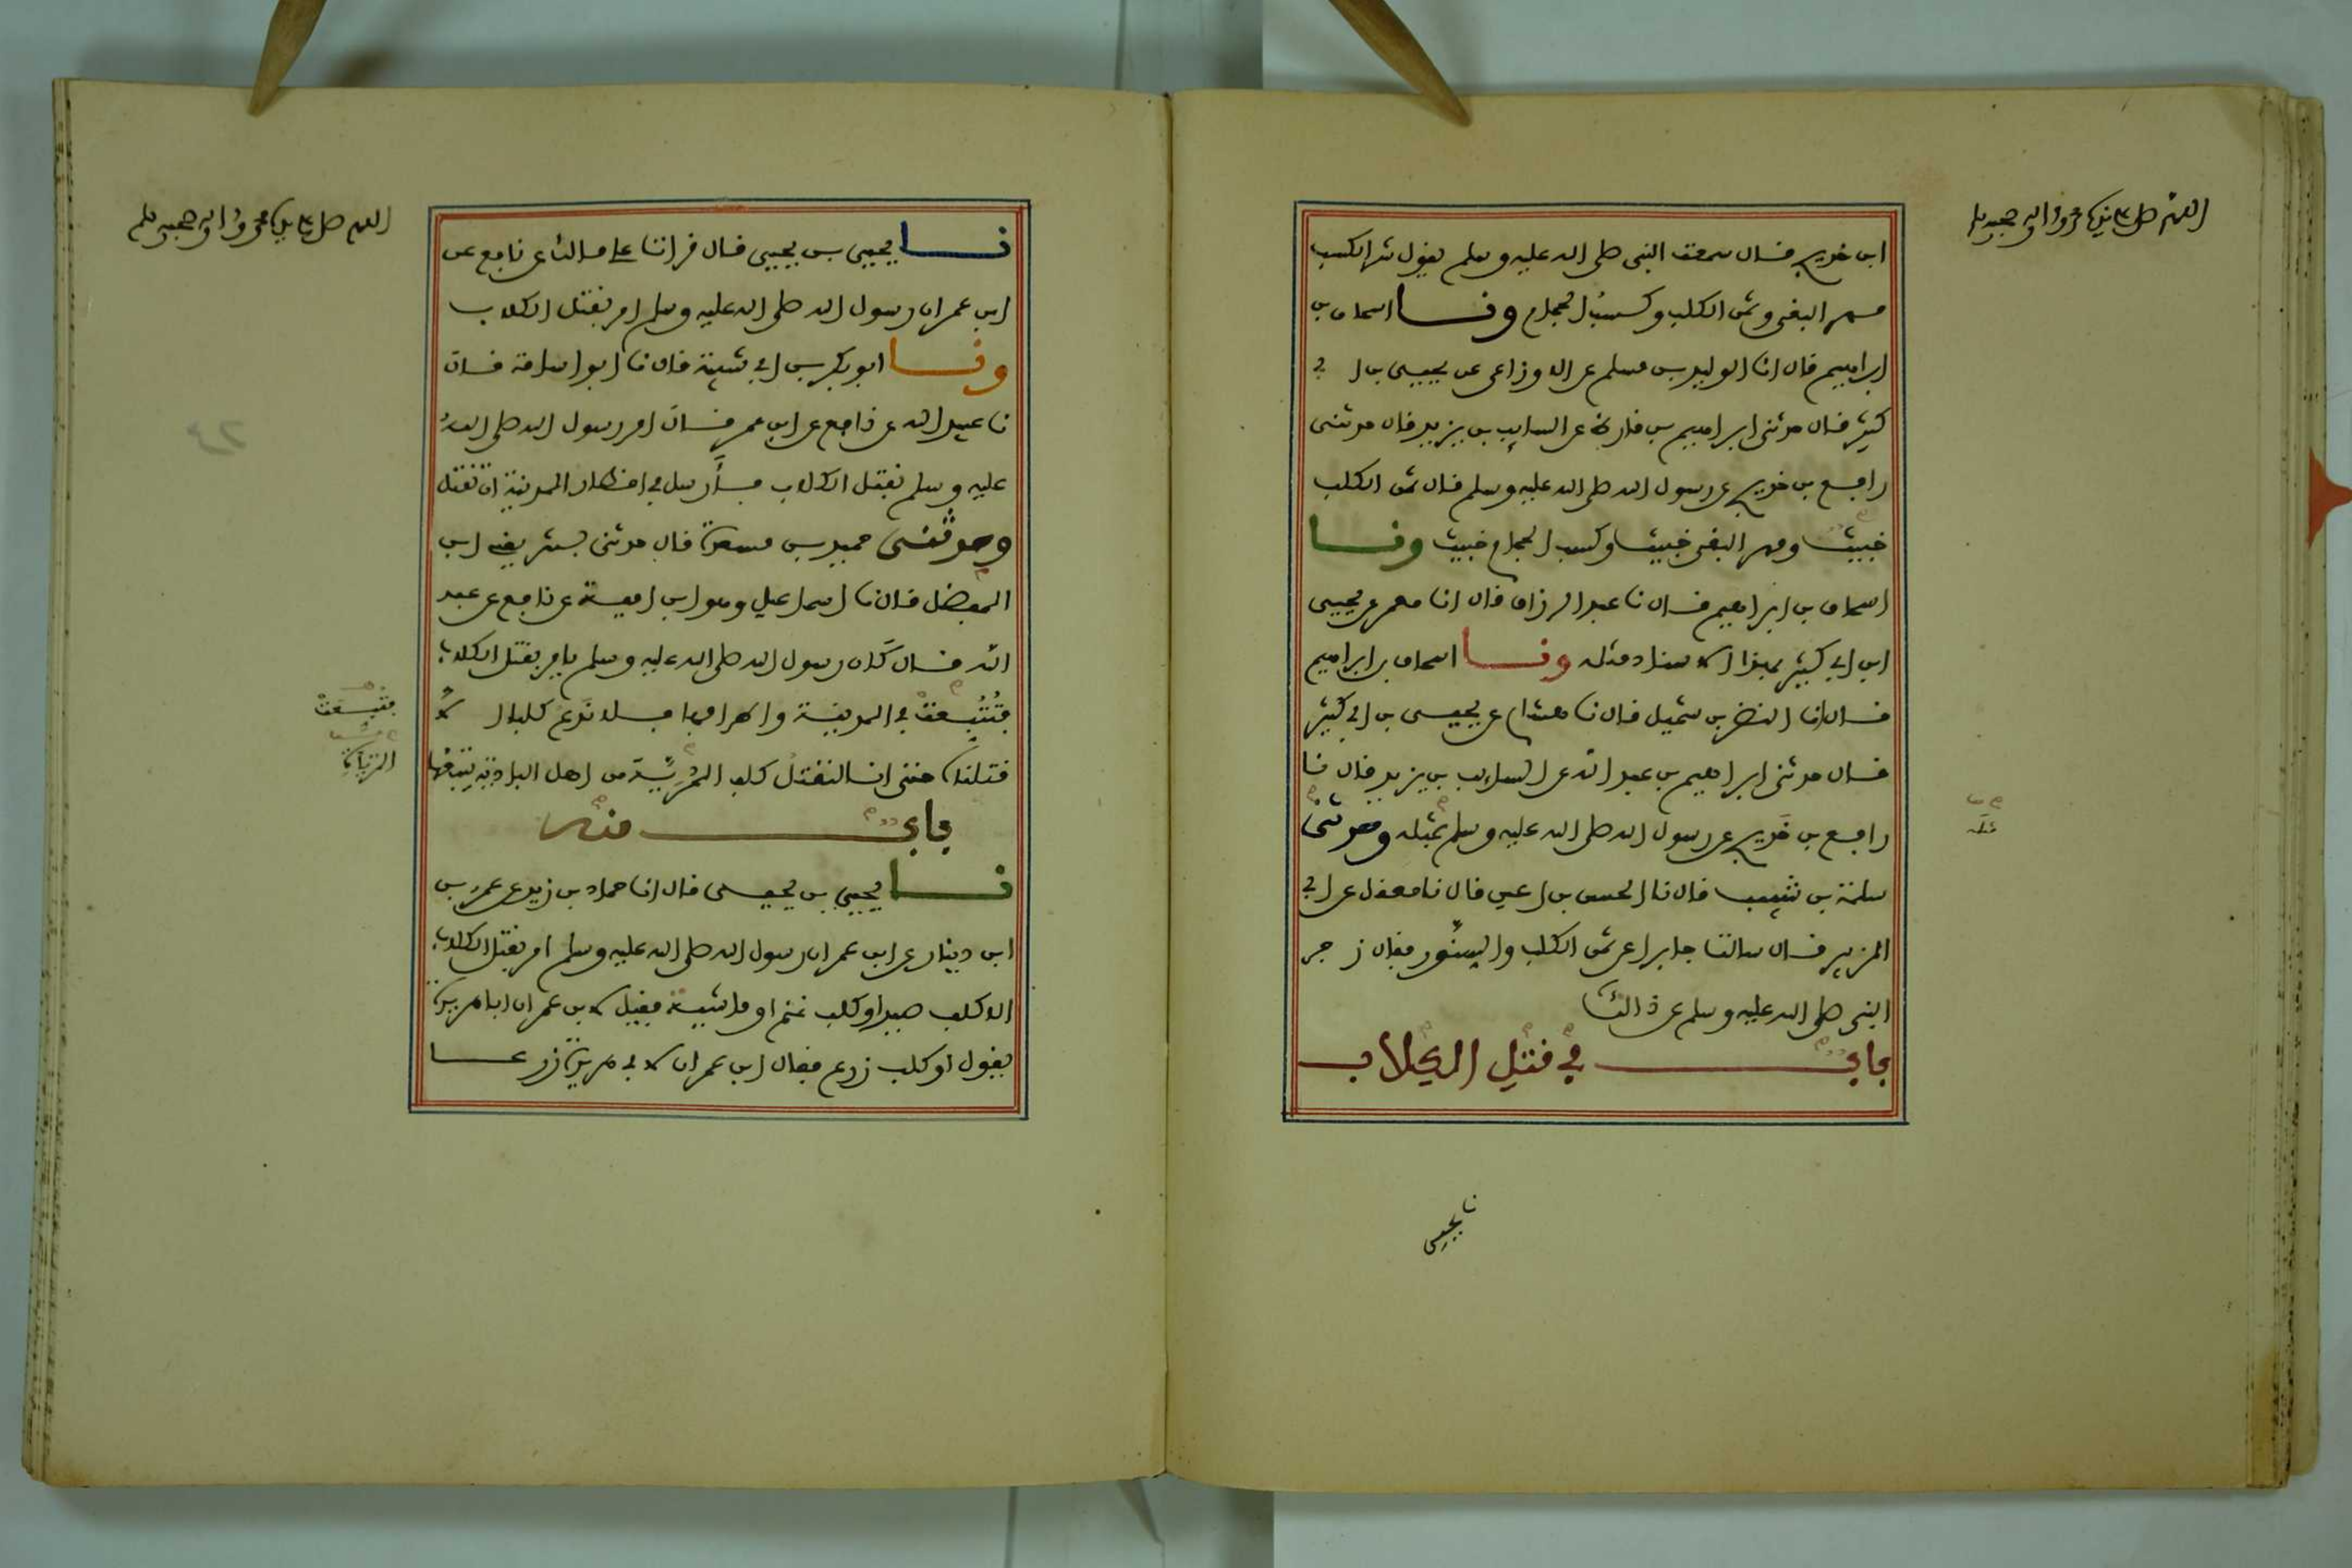 اللهم صل على سيدنا محمد وآله وصحبه وسلم
ابن خديج قال سمعت النبي صلى الله عليه وسلم يقول شر الكسب
مهر البغي وثمن الكلب وكسب الحجام ونا اسحاق بن
ابراهيم قال انا الوليد بن مسلم عن الاوزاعي عن يحيى بن ابي
كثير قال حدثني ابراهيم بن قارظ عن السايب بن يزيد قال حدثني
رافع بن خديج عن رسول الله صلى الله عليه وسلم قال ثمن الكلب
خبيث ومهر البغي خبيث وكسب الحجام خبيث ونا
اسحاق بن ابراهيم قال نا عبد الرزاق قال انا معمر عن يحيى
ابن ابي كثير بهذا الاسناد مثله ونا اسحاق بن ابراهيم
قال انا النضر بن شميل قال نا هشام عن يحيى بن ابي كثير
قال حدثني ابراهيم بن عبد الله عن السايب بن يزيد قال نا
رافع بن خديج عن رسول الله صلى الله عليه وسلم بمثله وحدثني
مثله
سلمة بن شبيب قال نا الحسن بن اعين قال نا معقل عن ابي
الزبير قال سالت جابرا عن ثمن الكلب والسنور فقال زجر
النبي صلى الله عليه وسلم عن ذالك
باب في قتل الكلاب
نا يحيى
اللهم صل على سيدنا محمد وآله وصحبه وسلم
نا يحيى بن يحيى قال قرات على مالك عن نافع عن
ابن عمر ان رسول الله صلى الله عليه وسلم امر بقتل الكلاب
ونا ابو بكر بن ابي شيبة قال نا ابو اسامة قال
نا عبيد الله عن نافع عن ابن عمر قال امر رسول الله صلى الله
عليه وسلم بقتل الكلاب فأرسل في اقطار المدينة ان تقتل
وحدثني حميد بن مسعدة قال حدثني بشر يعني ابن
المفضل قال نا اسماعيل وهو ابن امية عن نافع عن عبد
الله قال كان رسول الله صلى الله عليه وسلم يامر بقتل الكلاب
فتتبعت في المدينة واطرافها فلا ندع كلبا الا
فتتبعت
قتلناه حتى انا لنقتل كلب المرية من اهل البادية يتبعها
باب منه
نا يحيى بن يحيى قال انا حماد بن زيد عن عمر بن
ابن دينار عن ابن عمر ان رسول الله صلى الله عليه وسلم امر بقتل الكلاب
الا كلب صيد او كلب غنم او ماشية فقيل لابن عمر ان ابا هريرة
يقول او كلب زرع فقال ابن عمر ان لابي هريرة زرعا